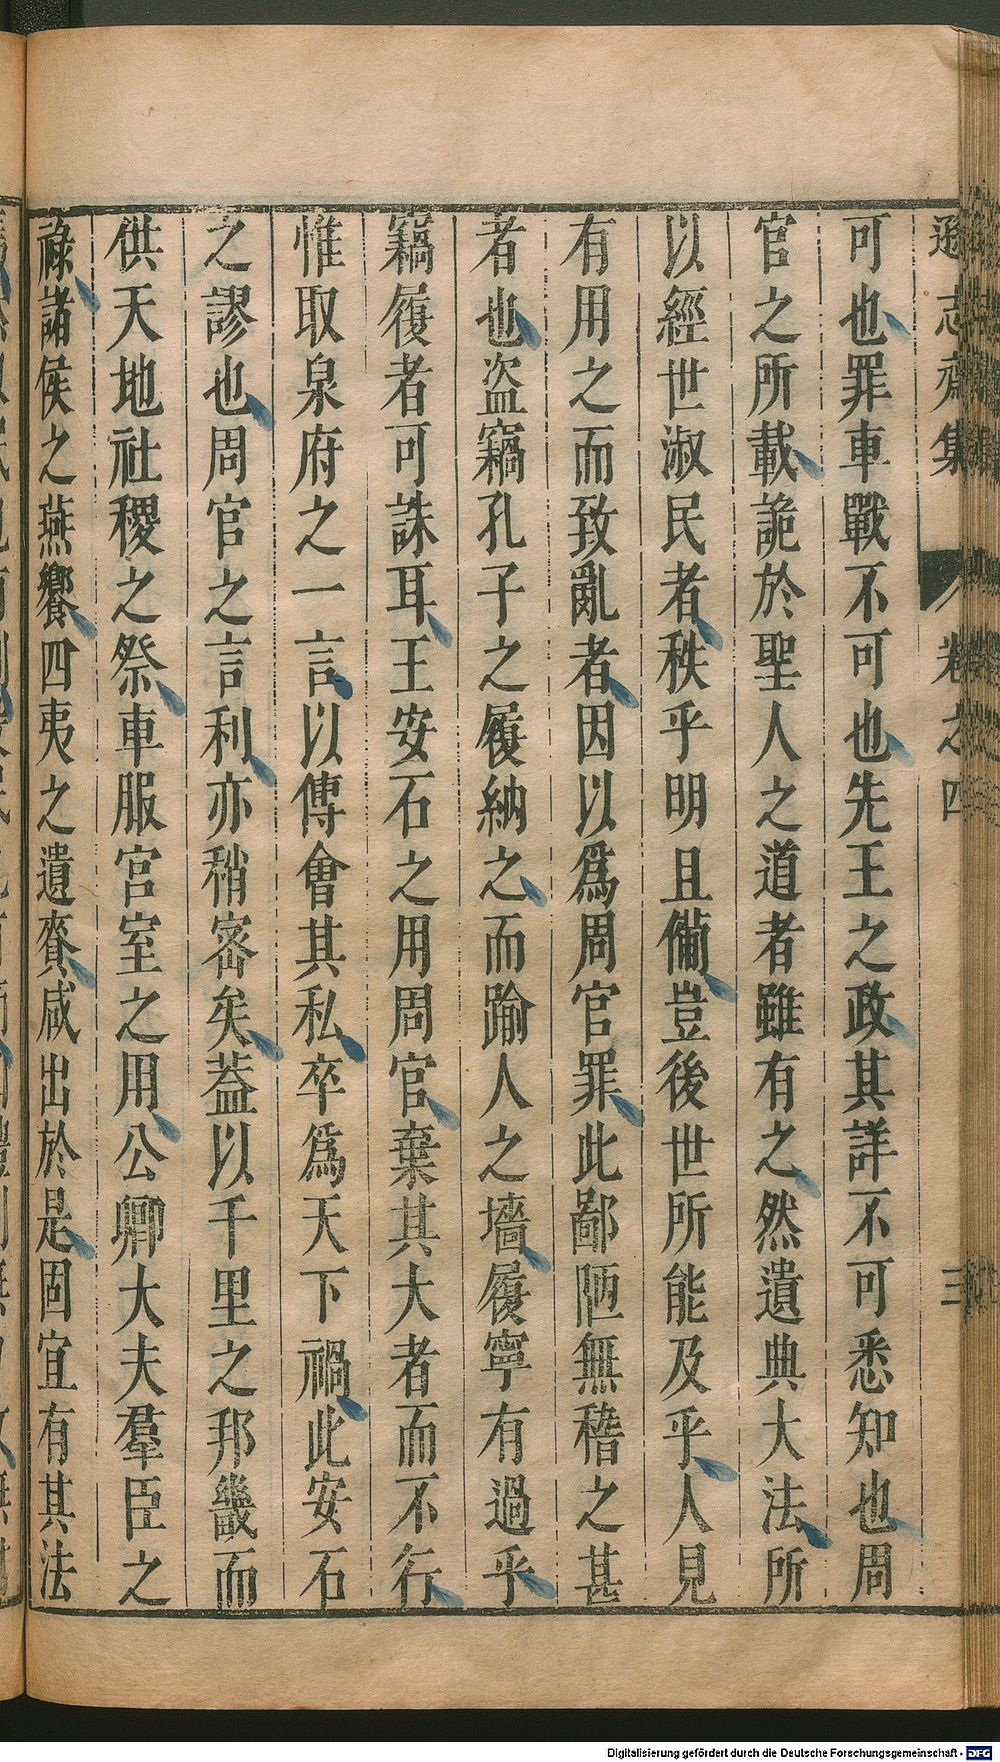 遜志齋集 卷之四 三
可也罪車戰不可也先王之政其詳不可悉知也周
官之所載詭於聖人之道者雖有之然遺典大法所
以經世淑民者秩乎明且備豈後世所能及乎人見
有用之而致亂者因以爲周官罪此鄙陋無稽之甚
者也盜竊孔子之履納之而踰人之墻履寧有過乎
竊履者可誅耳王安石之用周官棄其大者而不行
惟取泉府之一言以傳會其私卒爲天下禍此安石
之謬也周官之言利亦稍密矣葢以千里之邦畿而
供天地社稷之祭車服宮室之用公卿大夫羣臣之
祿諸侯之燕饗四夷之遺賚咸出於是固宜有其法
Digitalisierung gefördert durch die Deutsche Forschungsgemeinschaft - DFG